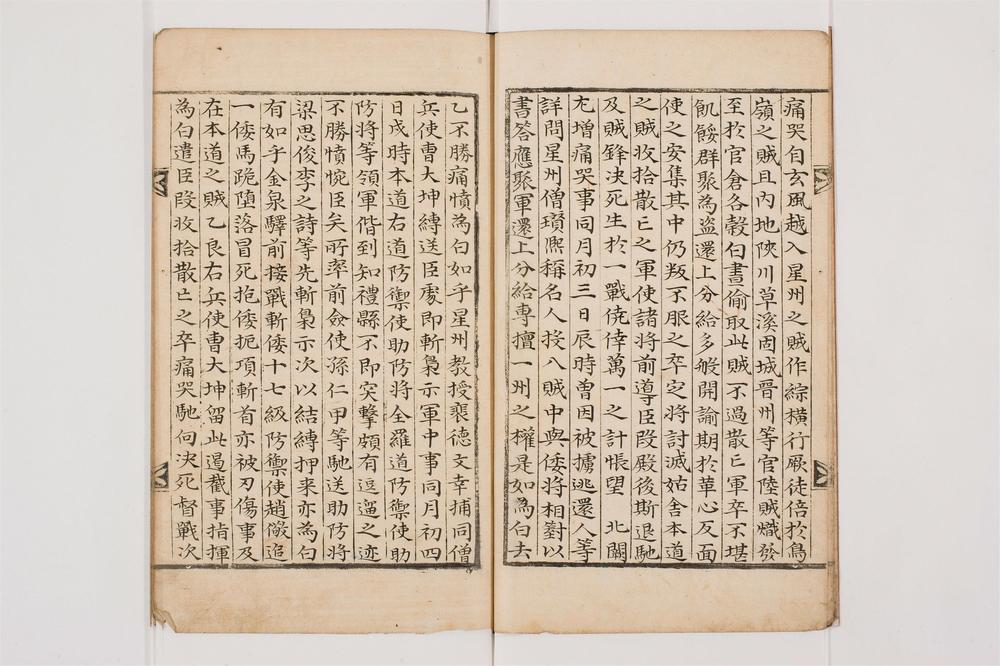 痛哭自玄風越入星州之賊作綜橫行厥徒倍於鳥
嶺之賊且內地陜川草溪固城晋州等官陸賊熾發
至於官倉各穀白晝偷取此賊不過散亡軍卒不堪
飢餒群聚為盜還上分給多般開諭期於革心反面
使之安集其中仍叛不服之卒定將討滅姑舍本道
之賊收拾散亡之軍使諸將前導臣段殿後斯退馳
及賊鋒决死生於一戰僥倖萬一之計悵望 北闕
尢增痛哭事同月初三日辰時曾因被擄逃還人等
詳問星州僧瓚熙稱名人投入賊中與倭將相對以
書答應聚軍還上分給專擅一州之權是如為白去
乙不勝痛憤為白如乎星州教授裵德文幸捕同僧
兵使曺大坤縛送臣處即斬梟示軍中事同月初四
日戌時本道右道防禦使助防將全羅道防禦使助
防將等領軍偕到知禮縣不即突擊頗有逗遛之迹
不勝憤惋臣矣所率前僉使孫仁甲等馳送助防將
梁思俊李之詩等先斬梟示次以結縛押来亦為白
有如乎金泉驛前接戰斬倭十七級防禦使趙儆追
一倭馬跪墮落冒死抱倭扼項斬首亦被刃傷事及
在本道之賊乙良右兵使曺大坤留此遏截事指揮
為白遣臣段收拾散亡之卒痛哭馳向决死督戰次